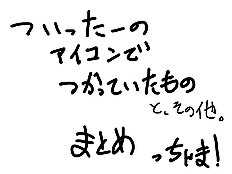 ついったーの
アイコンで
つかっていたもの
と、その他。
まとめ
っちょま!